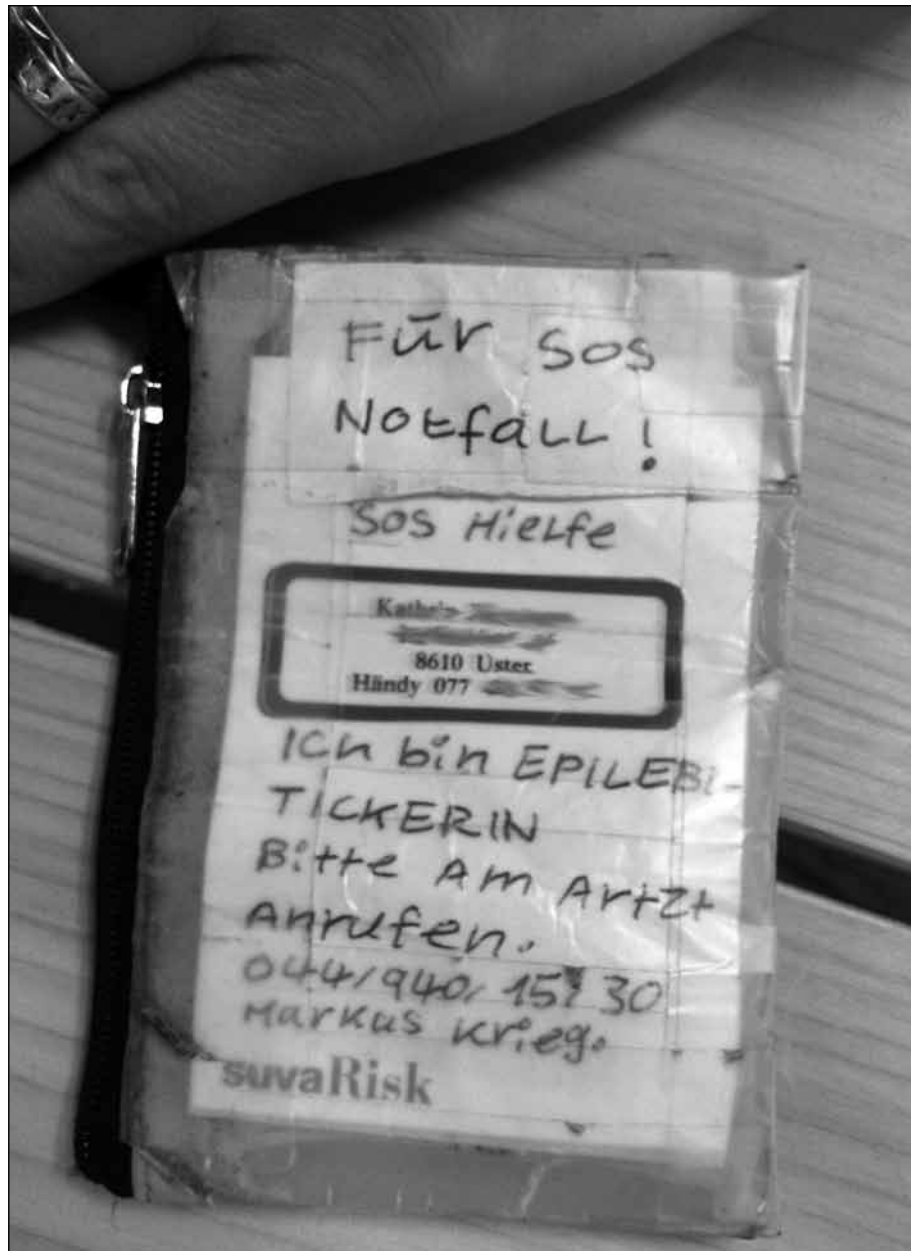 Für SOS
Notfall!
SOS Hielfe
Kathrin
8610 Uster
Händy 077
Ich bin EPILEBI-
TICKERIN
Bitte Am Artzt
Anrufen.
044/940/15 30
Markus Krieg.
suvaRisk